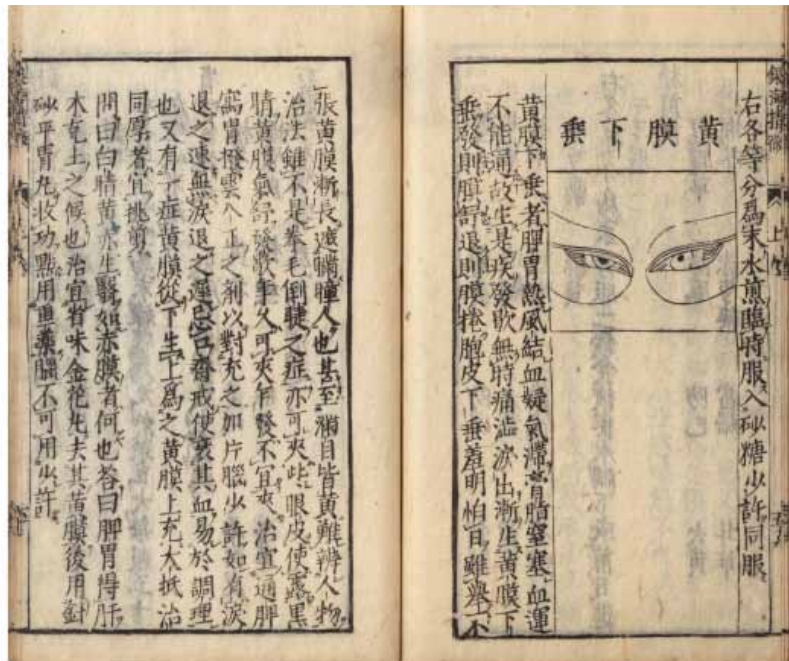 右各等分爲末水煎臨時服入砂糖少許同服
黄膜下垂
黄膜下垂者脾胃熱風結血凝氣滯膏脂窒塞血運
不能通故生是疾發歇無時痛澁淚出漸生黄膜下
垂發則膜舒退則膜捲胞皮下垂羞明怕日雖舉不
張黄膜漸長遮瞞瞳人也甚至滿目皆黄難辨人物
治法雖不是拳毛倒睫之症亦可夾些眼皮使露黒
睛黄膜氣經發歇年久可夾乍發不宜夾治宜通脾
瀉胃撥雲八正之劑以對充之加片腦少許如有淚
退之速無淚退之遲忌口齋戒使衰其血易於調理
也又有一症黄膜從下生上爲之黄膜上充大抵治
同厚者宜挑剪
問曰白睛黄赤生翳如赤膜者何也答曰脾胃得肝
木乾土之候也治宜省味金花丸夫其黄膜後用針
砂平胃丸收功點用重藥腦不可用少許